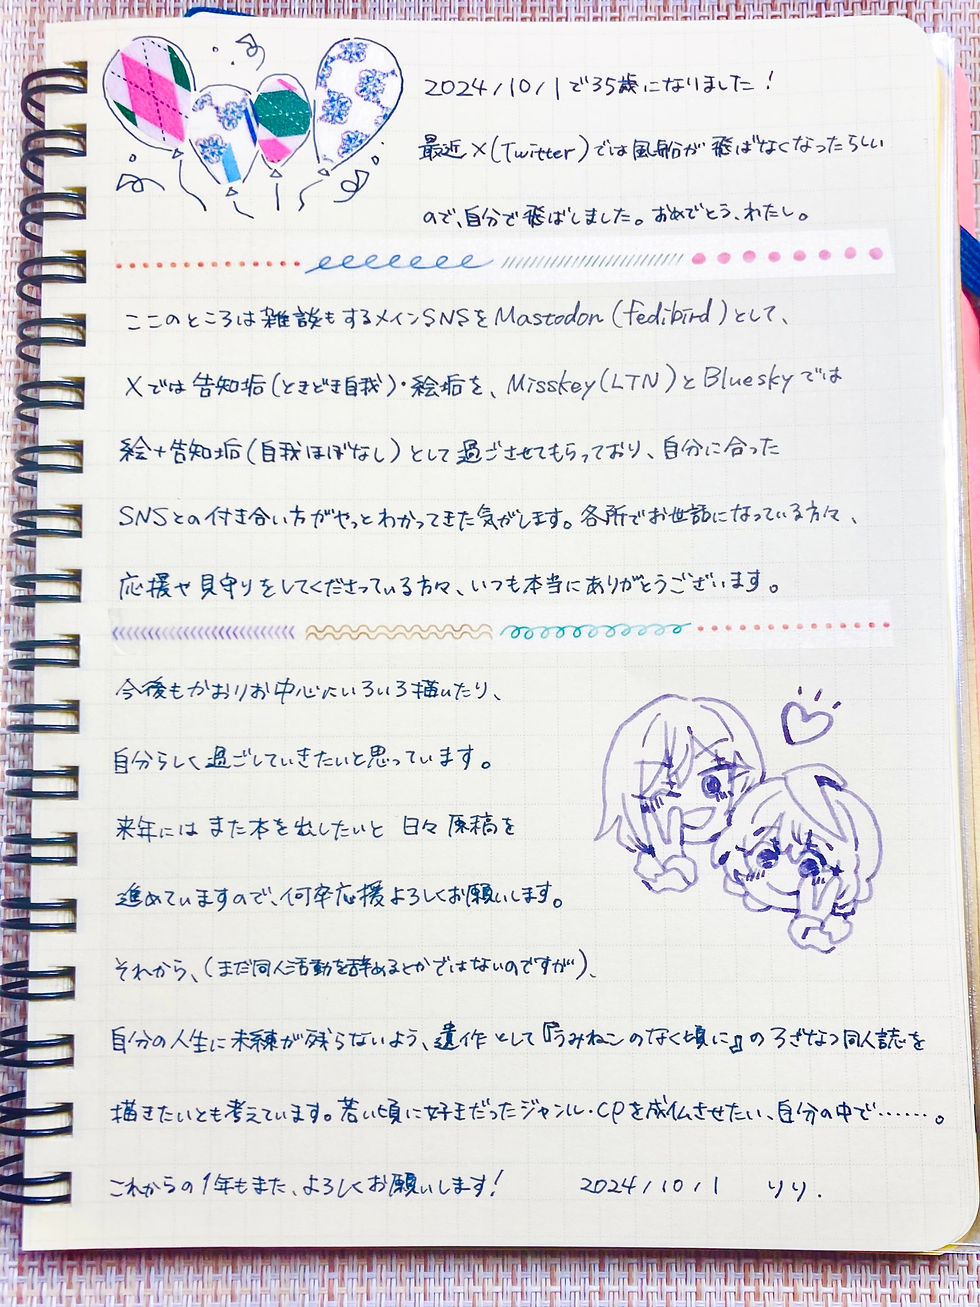 2024/10/1で35歳になりました!
最近X(Twitter)では風船が飛ばなくなったらしい
ので、自分で飛ばしました。おめでとう、わたし。
ここのところは雑談もするメインSNSをMastodon(fedibird)として、
Xでは告知垢(ときどき自我)・絵垢を、Misskey(LTN)とBlueskyでは
絵+告知垢(自我ほぼなし)として過ごさせてもらっており、自分に合った
SNSとの付き合い方がやっとわかってきた気がします。各所でお世話になっている方々、
応援や見守りをしてくださっている方々、いつも本当にありがとうございます。
今後もかおりお中心にいろいろ描いたり、
自分らしく過ごしていきたいと思っています。
来年にはまた本を出したいと日々原稿を
進めていますので、何卒応援よろしくお願いします。
それから、(まだ同人活動を辞めるとかではないのですが)、
自分の人生に未練が残らないよう、遺作として『うみねこのなく頃に』のろざなつ同人誌を
描きたいとも考えています。若い頃に好きだったジャンル・CPを成仏させたい、自分の中で……。
これからの1年もまた、よろしくお願いします!
2024/10/1 りり.